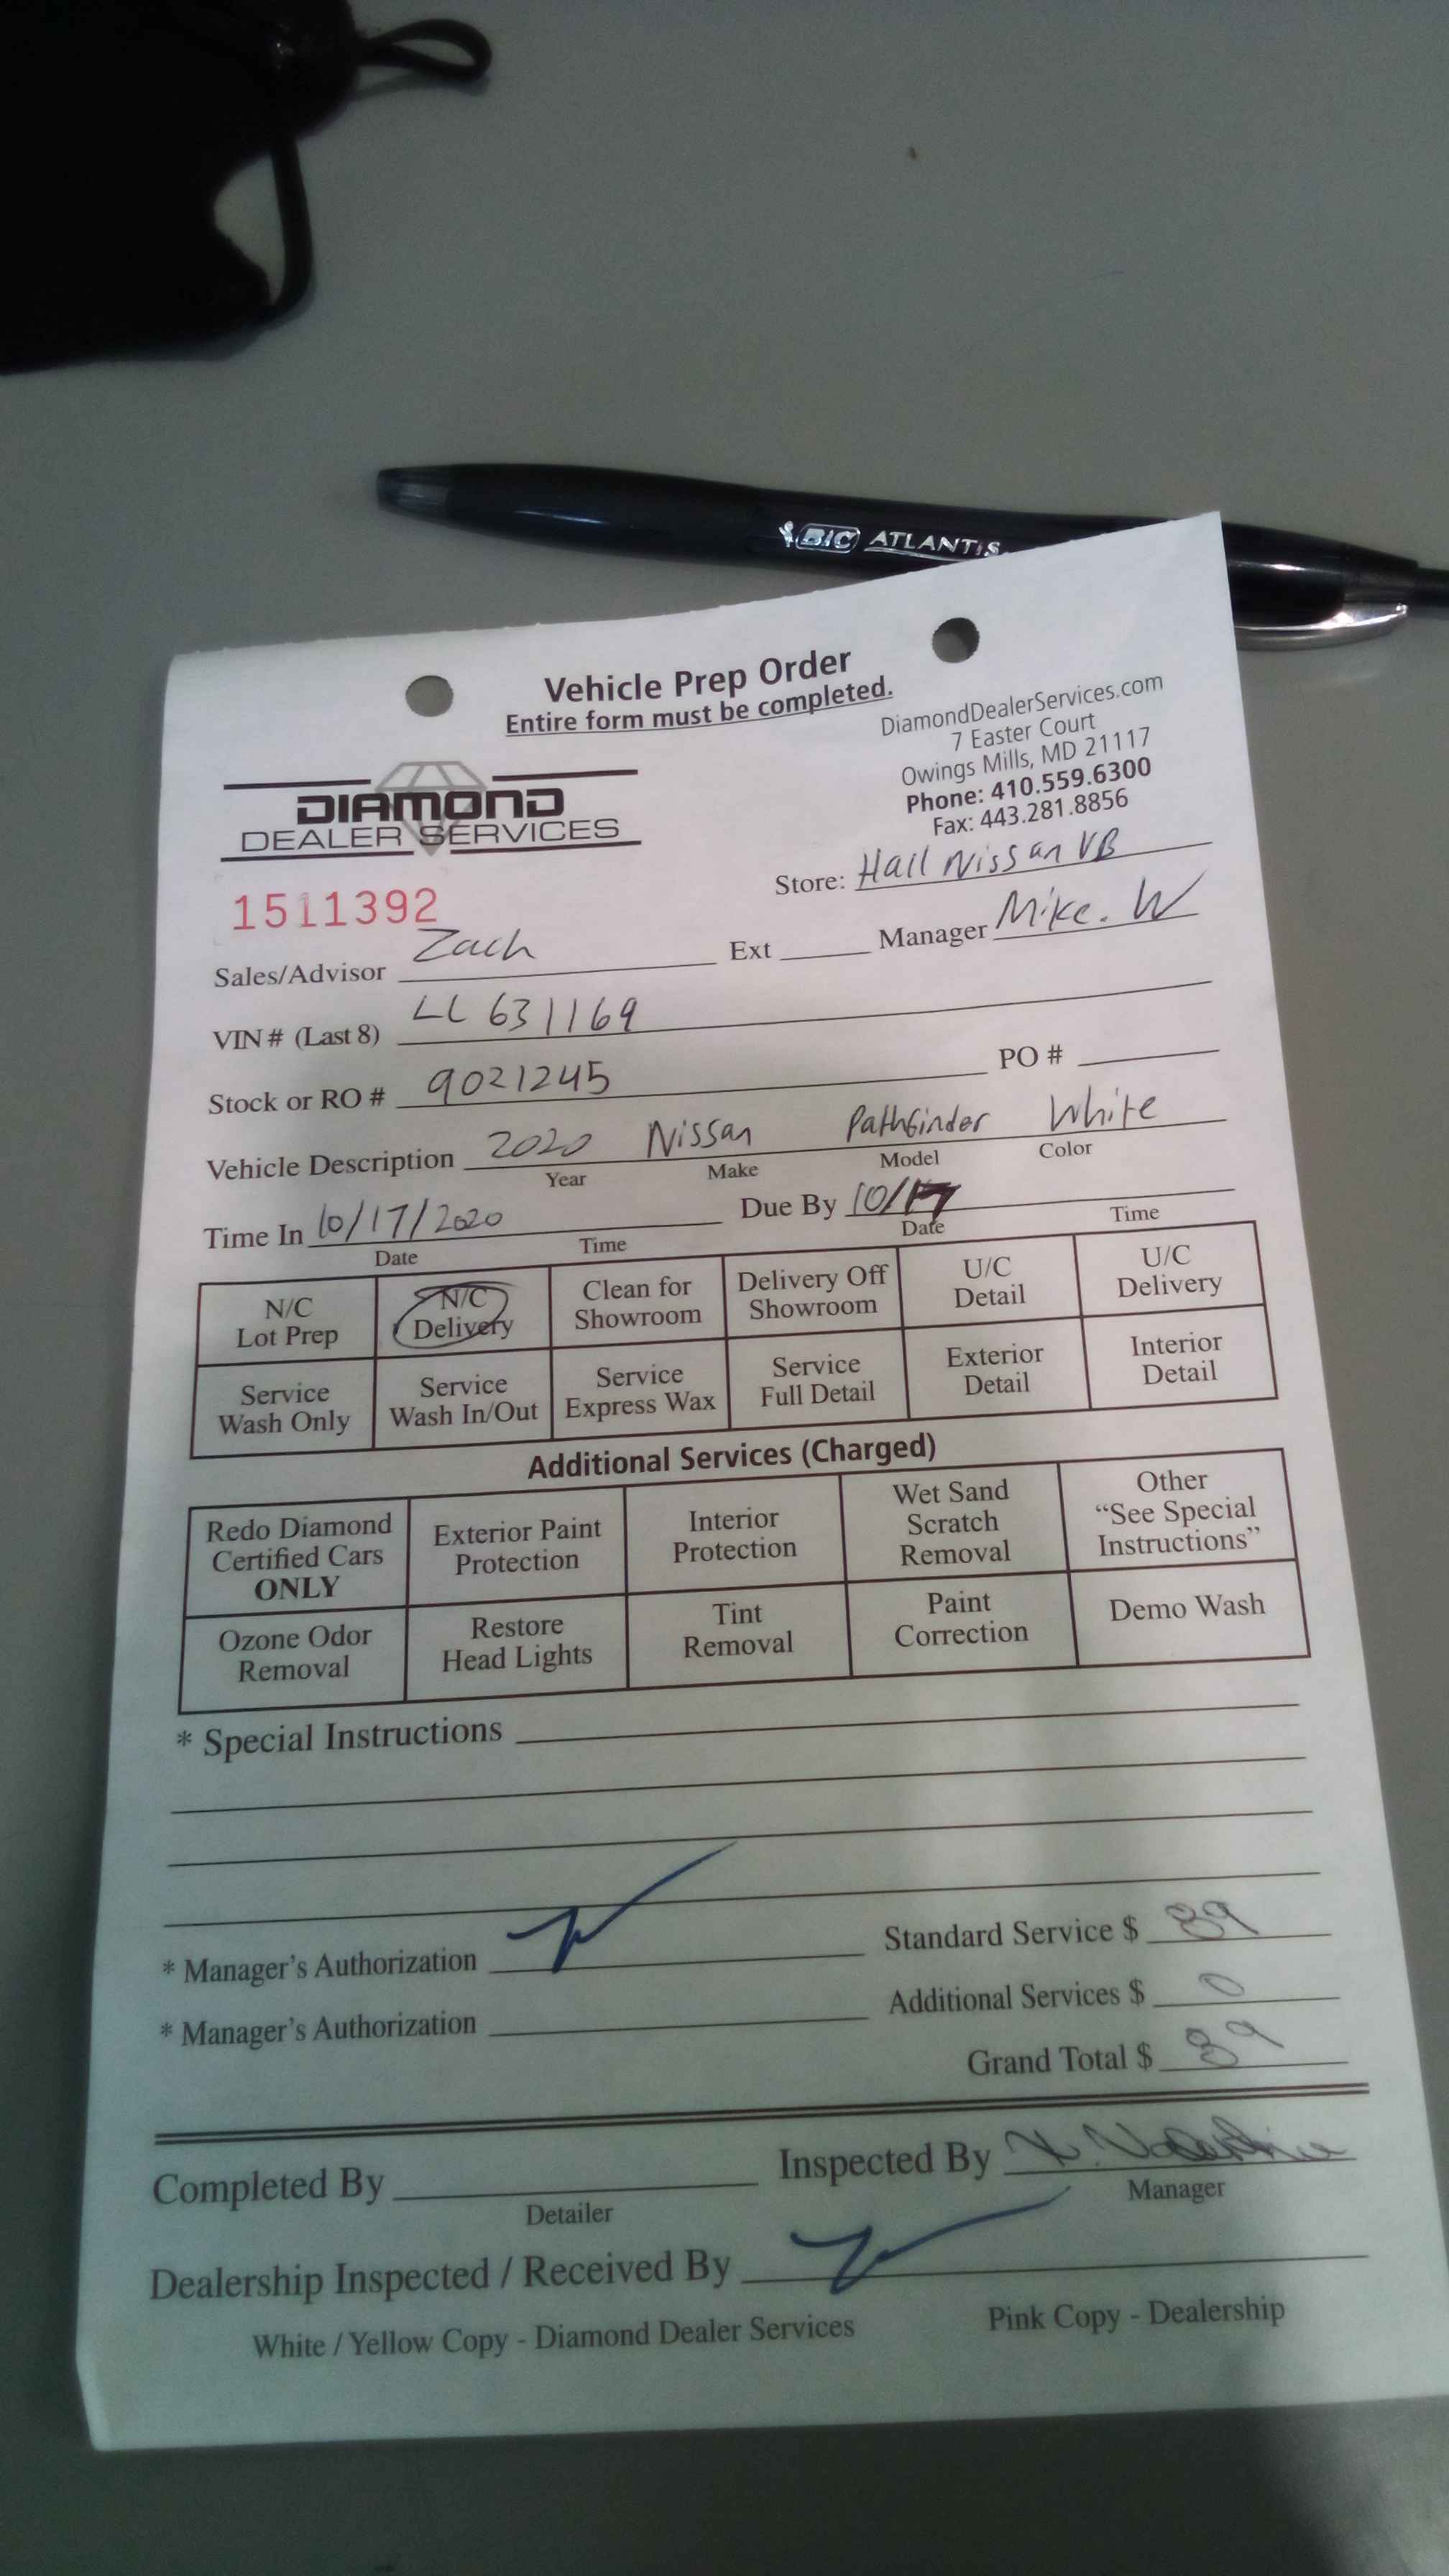 BIC ATLANTIS
Vehicle Prep Order
Entire form must be completed.
DiamondDealerServices.com
7 Easter Court
Owings Mills, MD 21117
Phone: 410.559.6300
Fax: 443.281.8856
DIAMOND
DEALER SERVICES
Store: Hall Nissan VB
1511392
Sales/Advisor Zach Ext Manager Mike. W
VIN # (Last 8) LC 631169
Stock or RO # 9021245 PO #
Vehicle Description 2020 Nissan Pathfinder White
Year Make Model Color
Time In 10/17/2020 Due By 10/17
Date Time Date Time
N/C Lot Prep
N/C Delivery
Clean for Showroom
Delivery Off Showroom
U/C Detail
U/C Delivery
Service Wash Only
Service Wash In/Out
Service Express Wax
Service Full Detail
Exterior Detail
Interior Detail
Additional Services (Charged)
Redo Diamond Certified Cars ONLY
Exterior Paint Protection
Interior Protection
Wet Sand Scratch Removal
Other "See Special Instructions"
Ozone Odor Removal
Restore Head Lights
Tint Removal
Paint Correction
Demo Wash
* Special Instructions
* Manager's Authorization Standard Service $ 89
Additional Services $ 0
* Manager's Authorization
Grand Total $ 89
Completed By Inspected By
Detailer Manager
Dealership Inspected / Received By
White / Yellow Copy - Diamond Dealer Services Pink Copy - Dealership